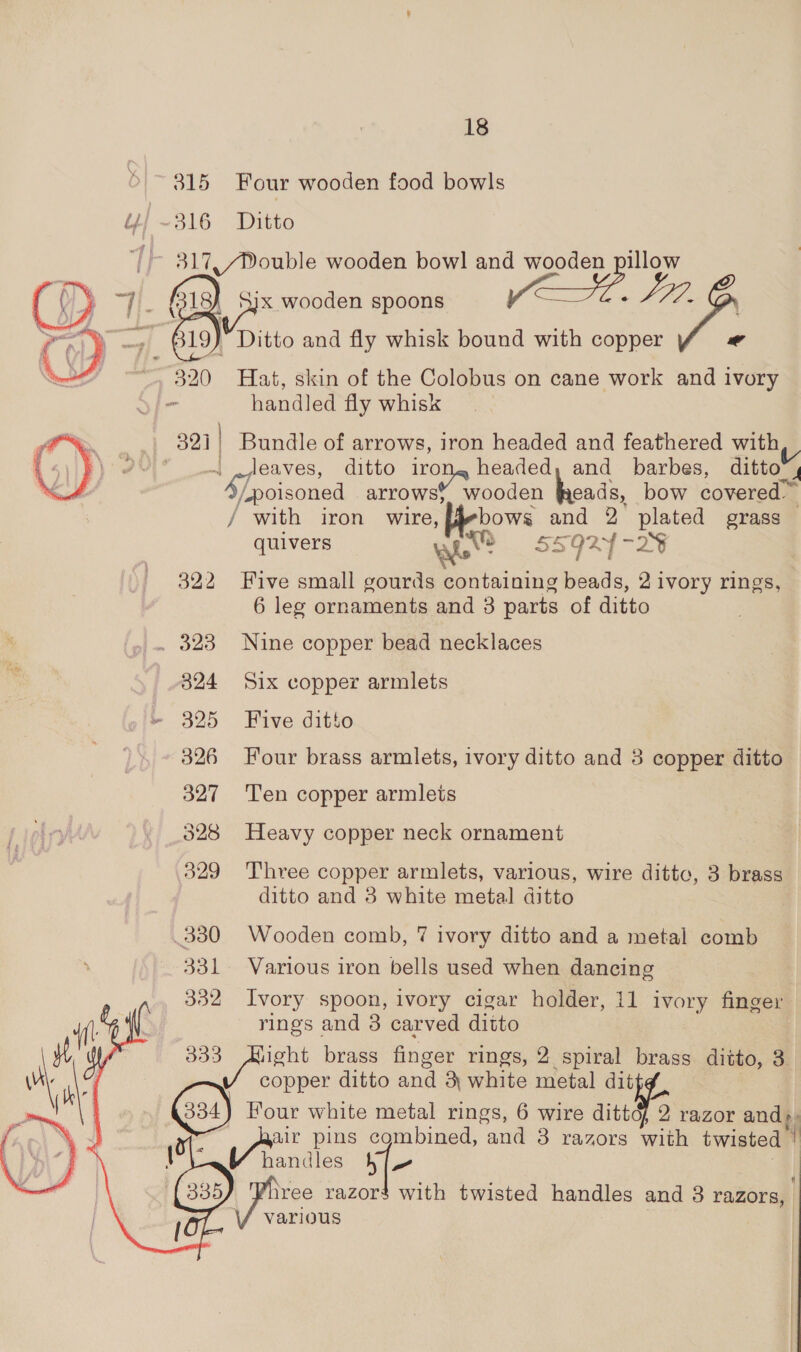 18
315 Four wooden food bowls
4/ 316 Ditto
317 Double wooden bowl and wooden pillow
7/- 318 Six wooden spoons
319 Ditto and fly whisk bound with copper
320 Hat, skin of the Colobus on cane work and ivory
handled fly whisk
321 Bundle of arrows, iron headed and feathered with
leaves, ditto iron headed, and barbes, ditto
poisoned arrows, wooden heads, bow covered
with iron wire, bows and 2 plated grass
quivers 55924-28
322 Five small gourds containing beads, 2 ivory rings,
6 leg ornaments and 3 parts of ditto
323 Nine copper bead necklaces
324 Six copper armlets
325 Five ditto
326 Four brass armlets, ivory ditto and 3 copper ditto
327 Ten copper armlets
328 Heavy copper neck ornament
329 Three copper armlets, various, wire ditto, 3 brass
ditto and 3 white metal ditto
330 Wooden comb, 7 ivory ditto and a metal comb
331 Various iron bells used when dancing
332 Ivory spoon, ivory cigar holder, 11 ivory finger
rings and 3 carved ditto
333 Eight brass finger rings, 2 spiral brass ditto, 3
copper ditto and 3 white metal ditto
334 Four white metal rings, 6 wire ditto, 2 razor and
hair pins combined, and 3 razors with twisted
handles 5/-
335 Three razors with twisted handles and 3 razors,
10/- various